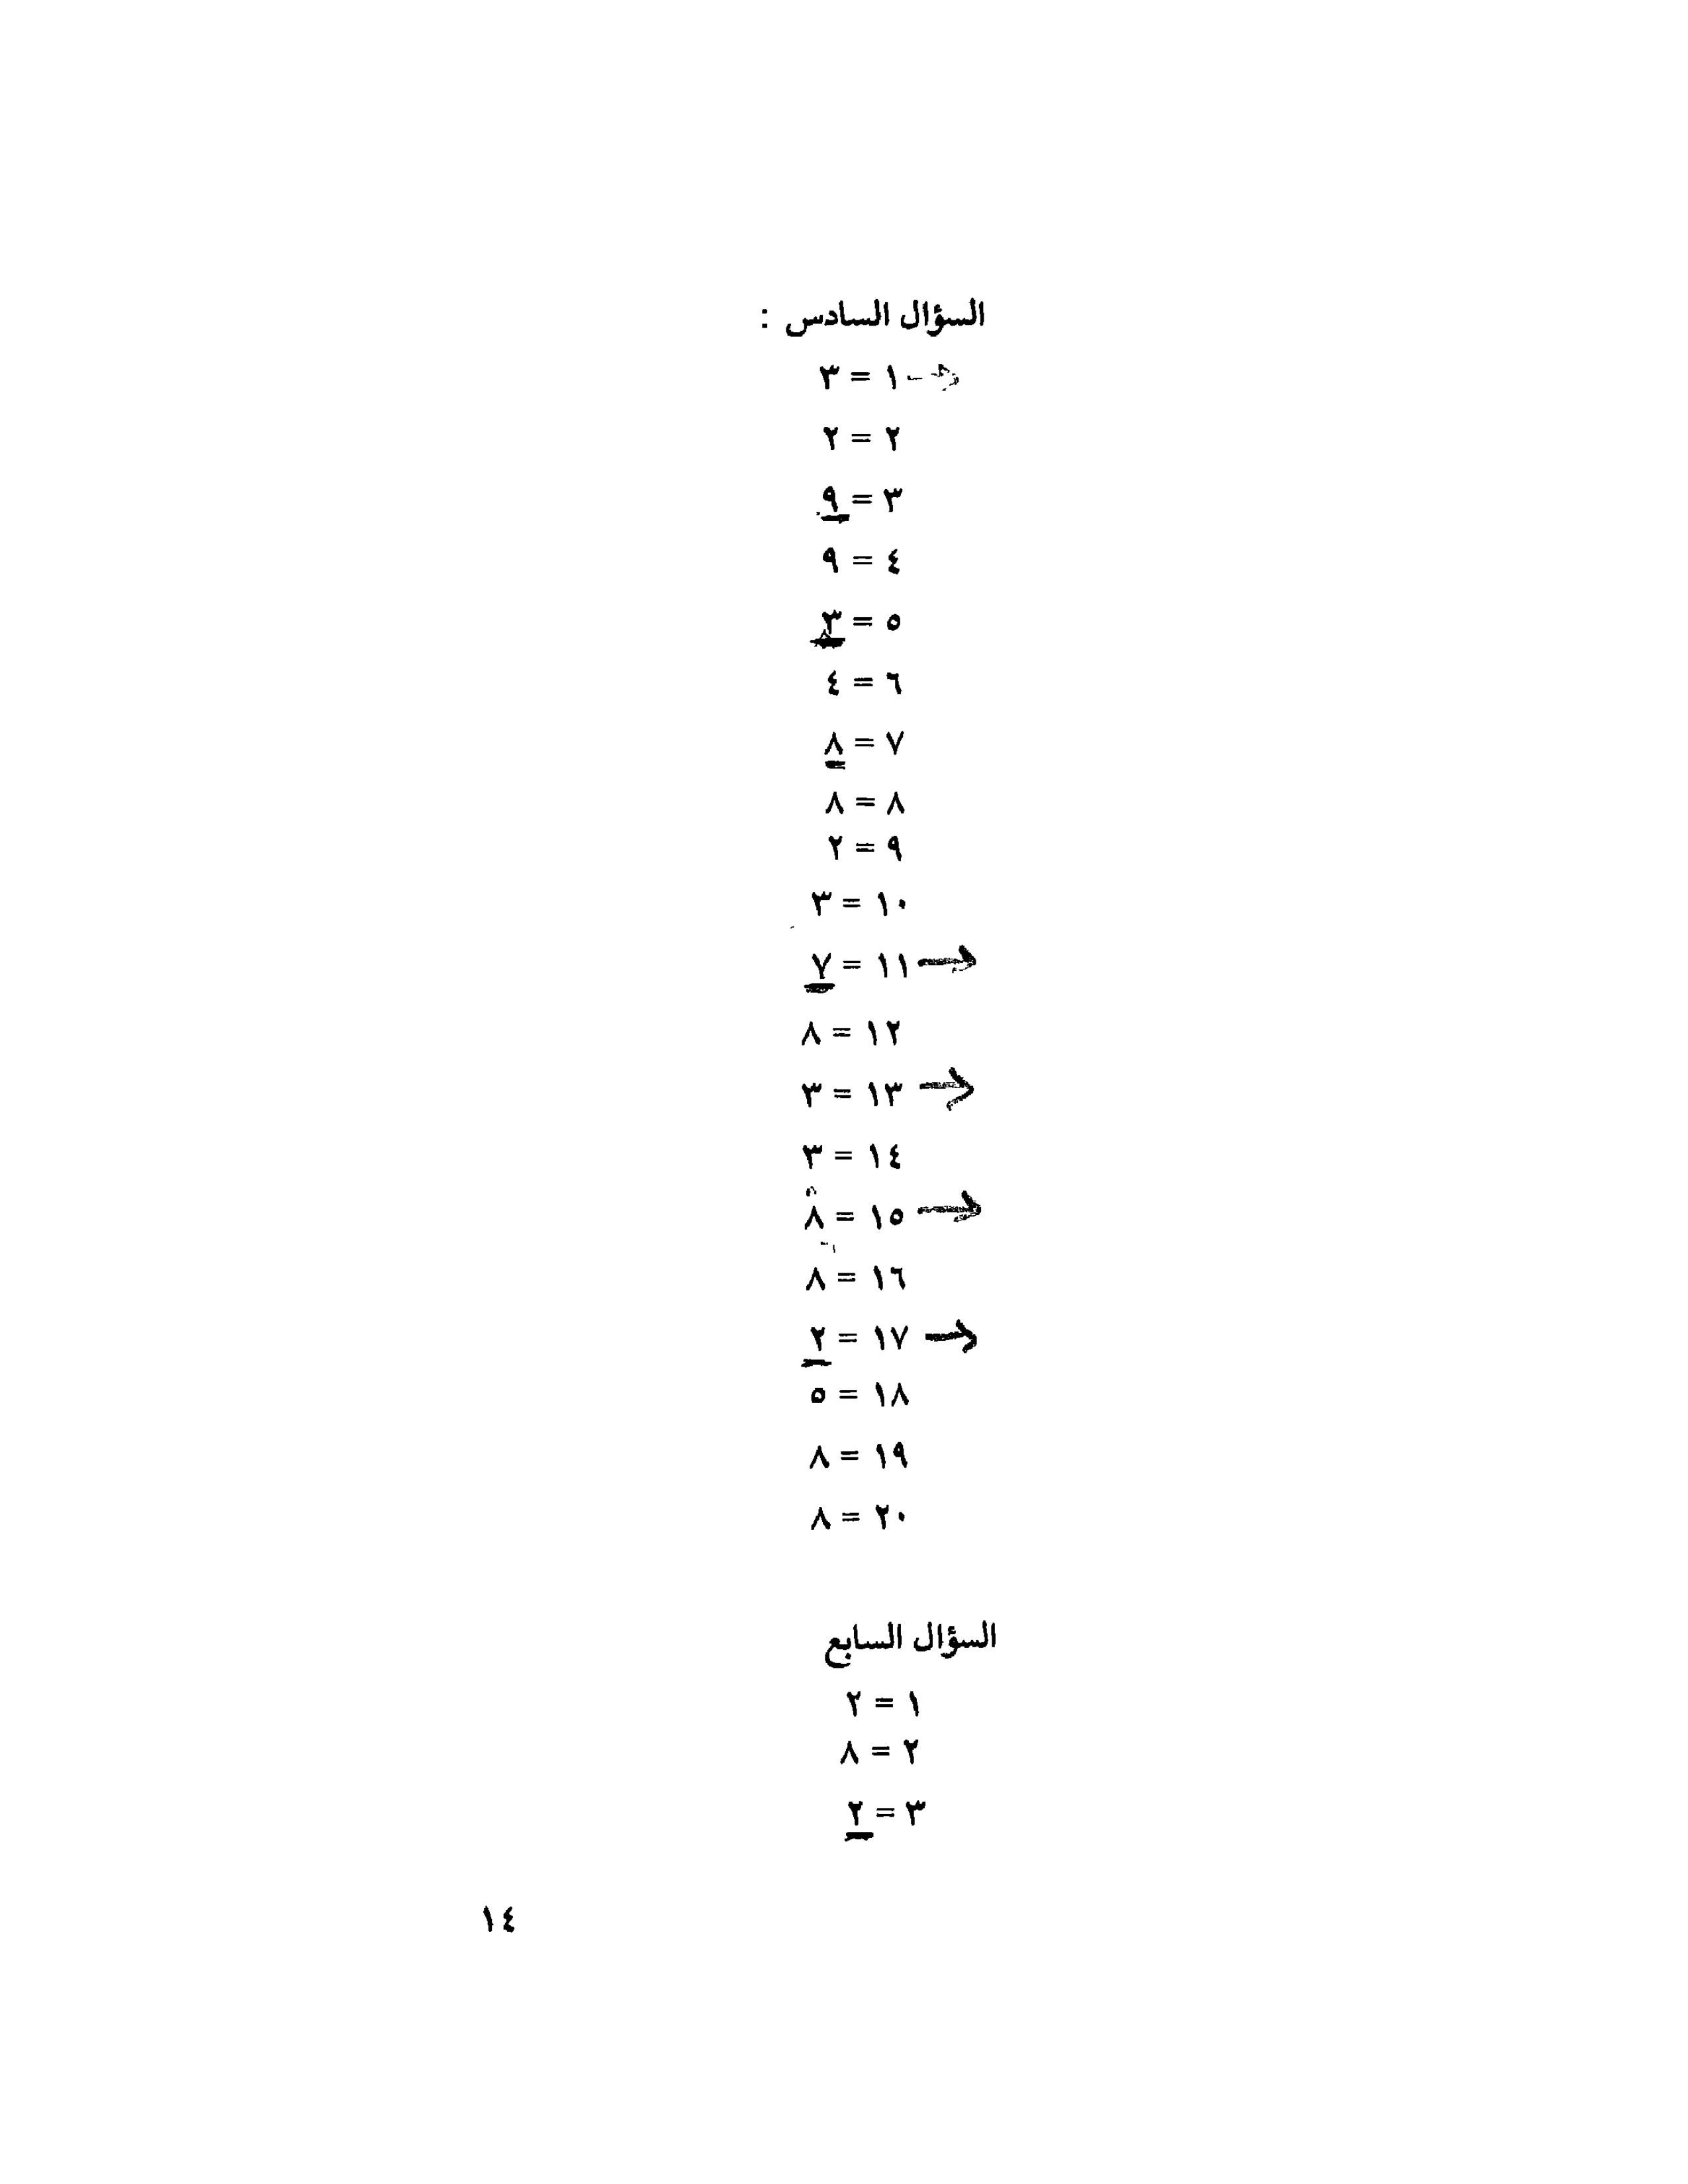 السؤال السادس :
١ = ٣
٢ = ٢
٣ = ٩
٤ = ٩
٥ = ٣
٦ = ٤
٧ = ٨
٨ = ٨
٩ = ٢
١٠ = ٣
١١ = ٧
١٢ = ٨
١٣ = ٣
١٤ = ٣
١٥ = ٨
١٦ = ٨
١٧ = ٢
١٨ = ٥
١٩ = ٨
٢٠ = ٨
السؤال السابع
١ = ٢
٢ = ٨
٣ = ٢
١٤